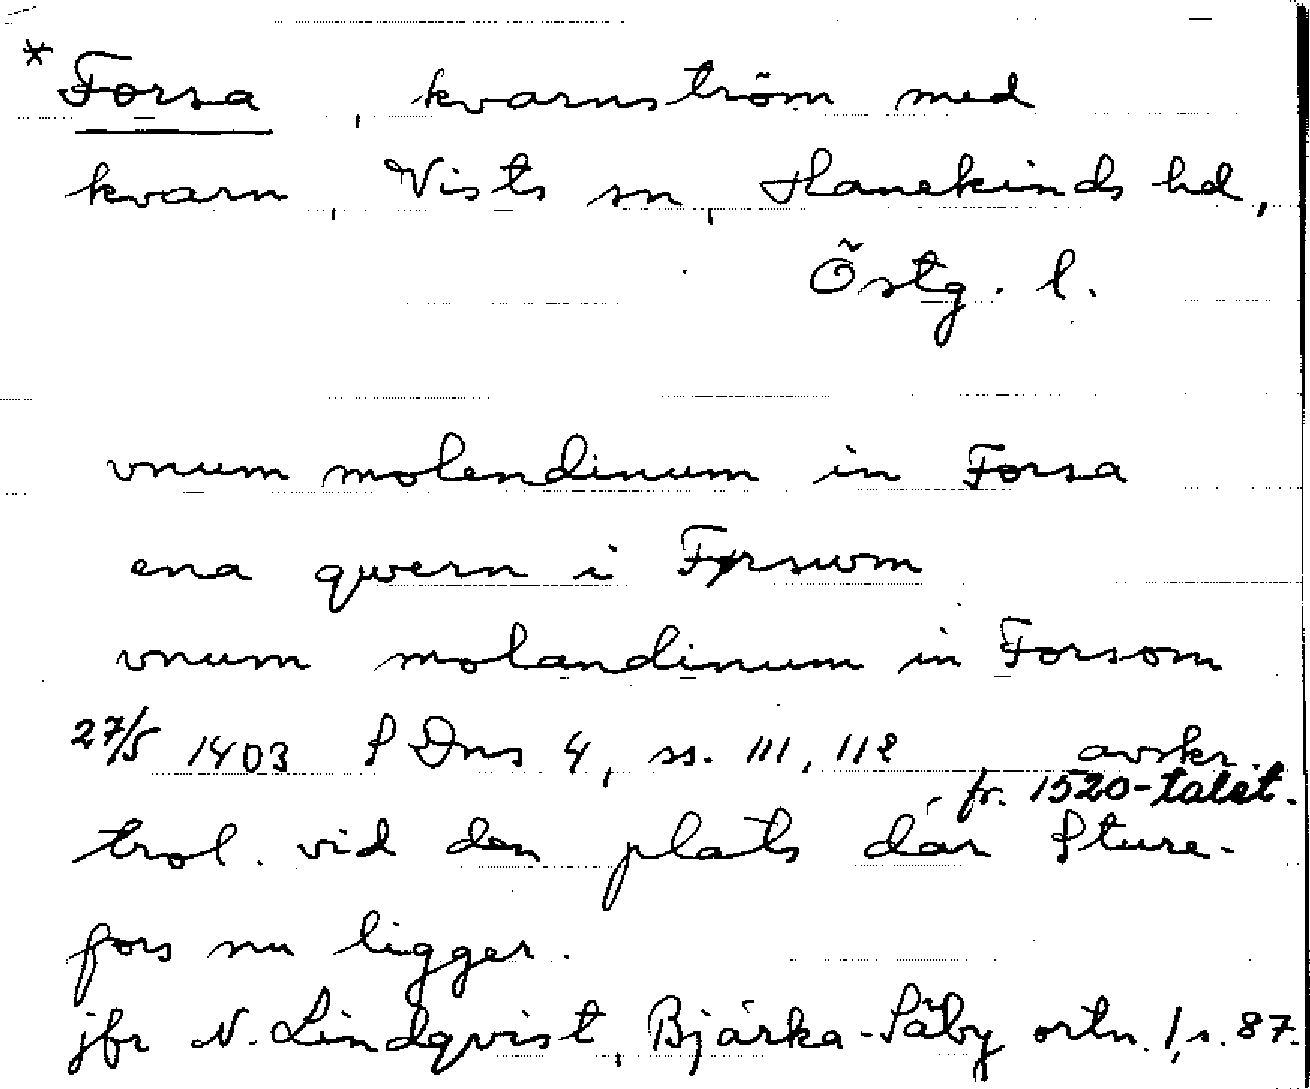 * Forsa, kvarnström med
kvarn, Vists sn, Hanekinds hd,
Östg. l.
vnum molendinum in Forsa
ena qwern i Forswm
vnum molandinum in Forsom
27/5 1403 SDns 4, ss. 111, 112 avskr.
fr. 1520-talet.
trol. vid den plats där Sture-
fors nu ligger.
jfr N. Lindqvist, Bjärka-Säby ortn. 1, s. 87.